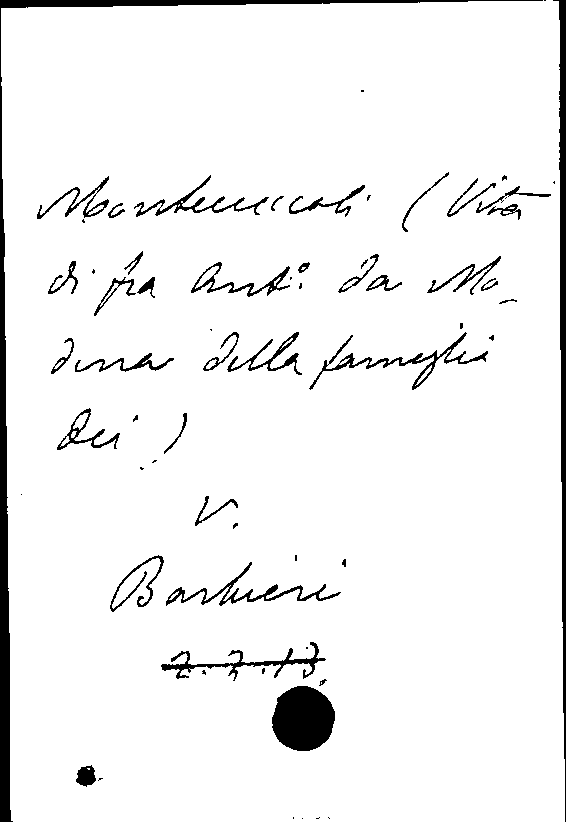 Montecuccoli (Vita
di fra Ant.º da Mo-
dena della famiglia
dei)
V.
Barbieri
2.7.13